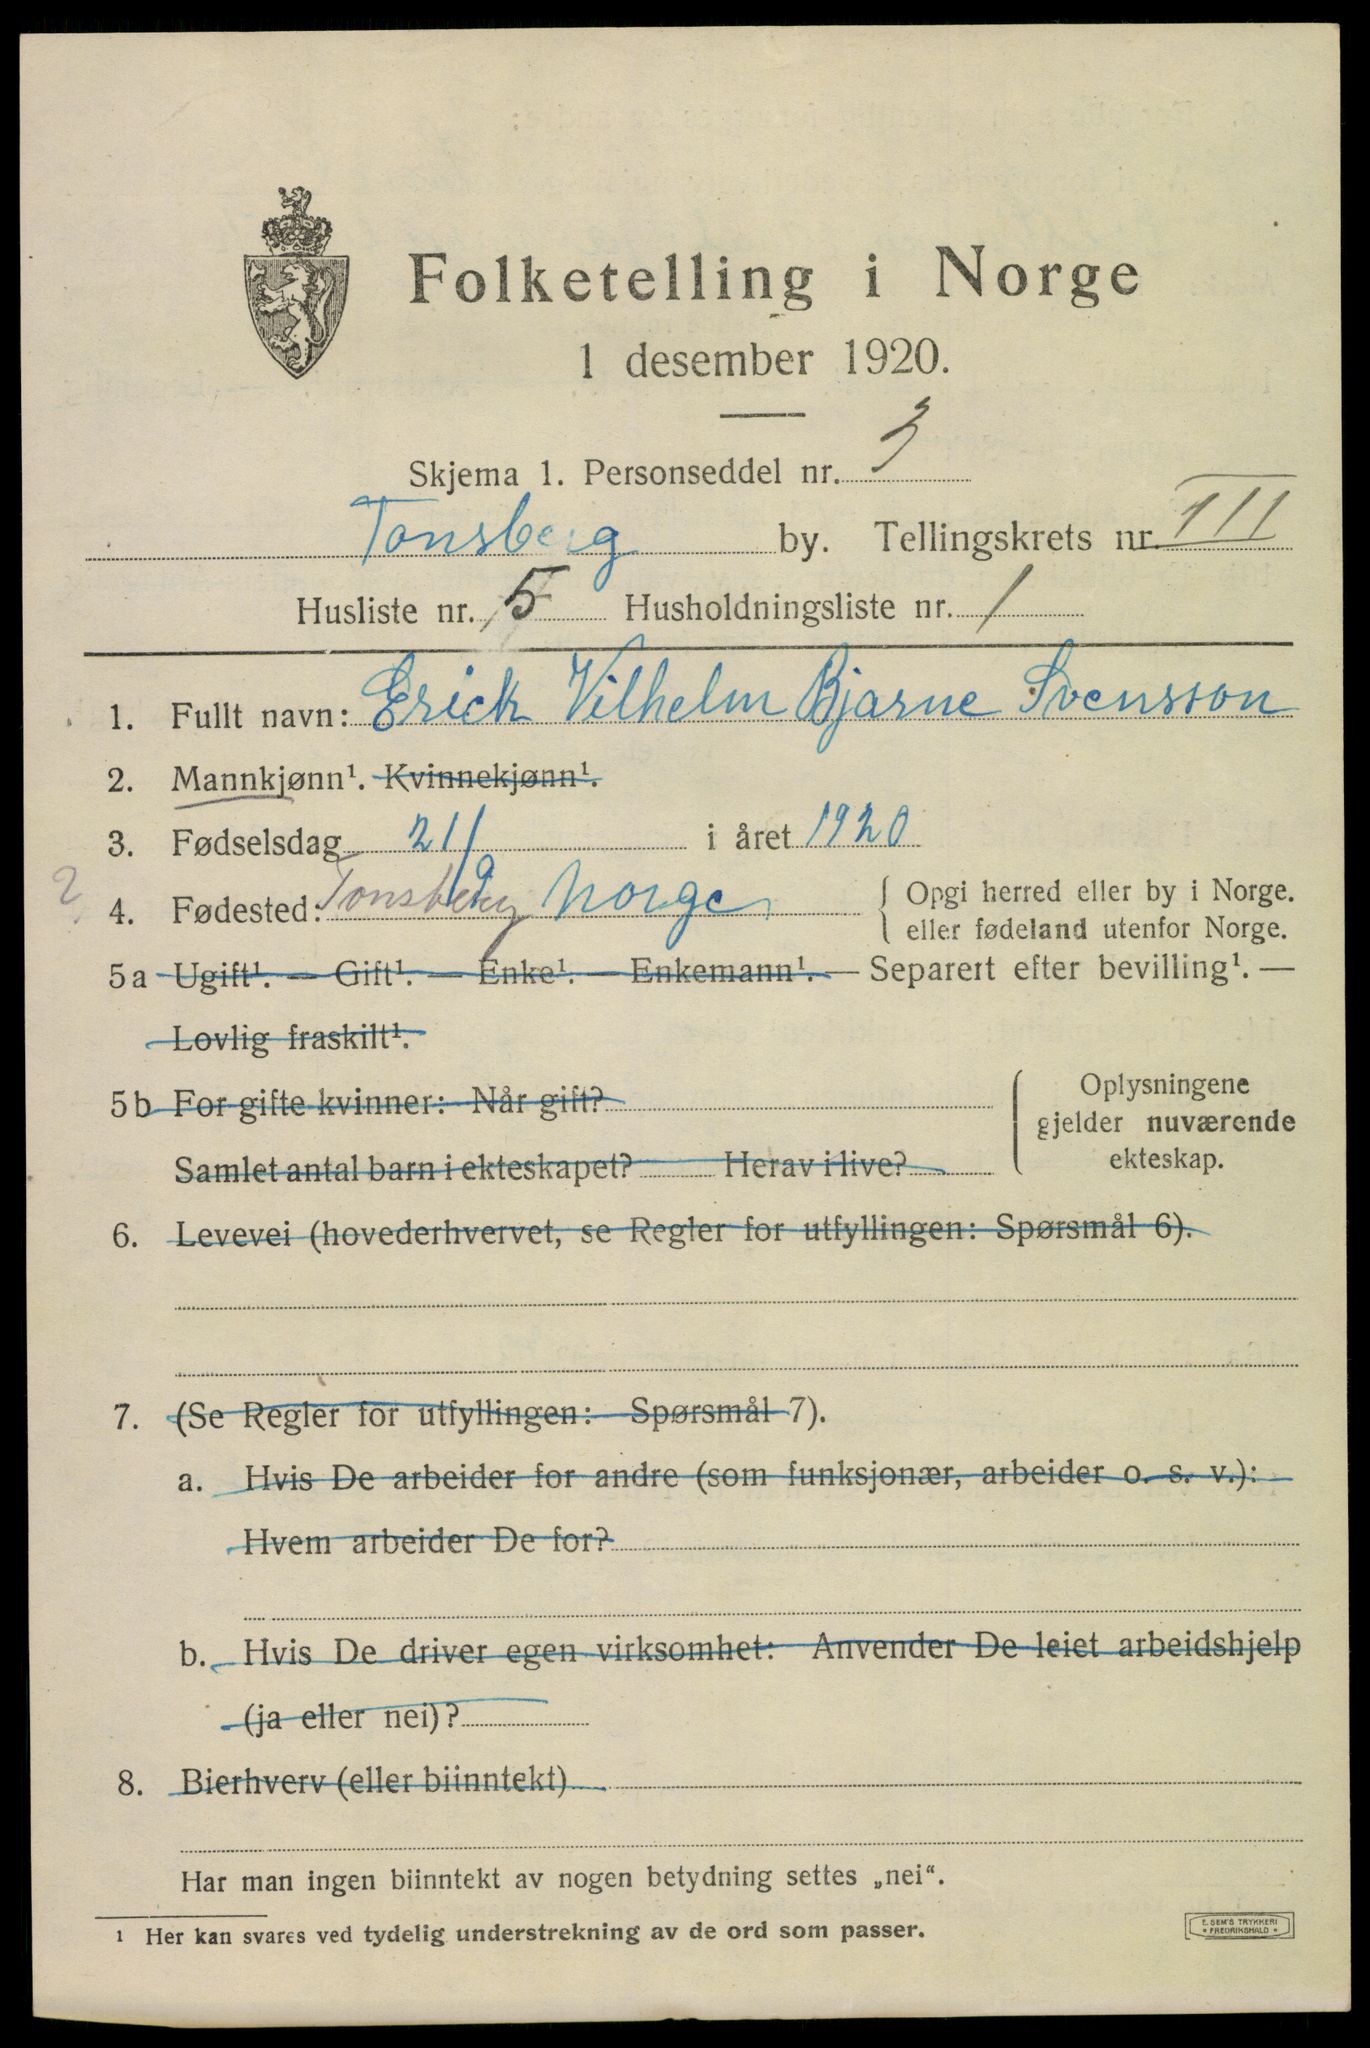 Folketelling i Norge
1 desember 1920.
Skjema 1. Personseddel nr. 3
Tonsberg by. Tellingskrets nr. III
Husliste nr. 5 Husholdningsliste nr. 1
1. Fullt navn: Erick Vilhelm Bjarne Svensson
2. Mannkjønn¹. Kvinnekjønn¹.
3. Fødselsdag 21/9 i året 1920
2 4. Fødested: Tonsberg Norge { Opgi herred eller by i Norge.
eller fødeland utenfor Norge.
5a Ugift¹. — Gift¹. — Enke¹. — Enkemann¹. — Separert efter bevilling¹. —
Lovlig fraskilt¹.
5b For gifte kvinner: Når gift?
Samlet antal barn i ekteskapet? Herav i live?
Oplysningene
gjelder nuværende
ekteskap.
6. Levevei (hovederhvervet, se Regler for utfyllingen: Spørsmål 6).
7. (Se Regler for utfyllingen: Spørsmål 7).
a. Hvis De arbeider for andre (som funksjonær, arbeider o. s. v.):
Hvem arbeider De for?
b. Hvis De driver egen virksomhet: Anvender De leiet arbeidshjelp
(ja eller nei)?
8. Bierhverv (eller biinntekt)
Har man ingen biinntekt av nogen betydning settes „nei“.
¹ Her kan svares ved tydelig understrekning av de ord som passer.
E. SEM'S TRYKKERI
• FREDRIKSHALD •